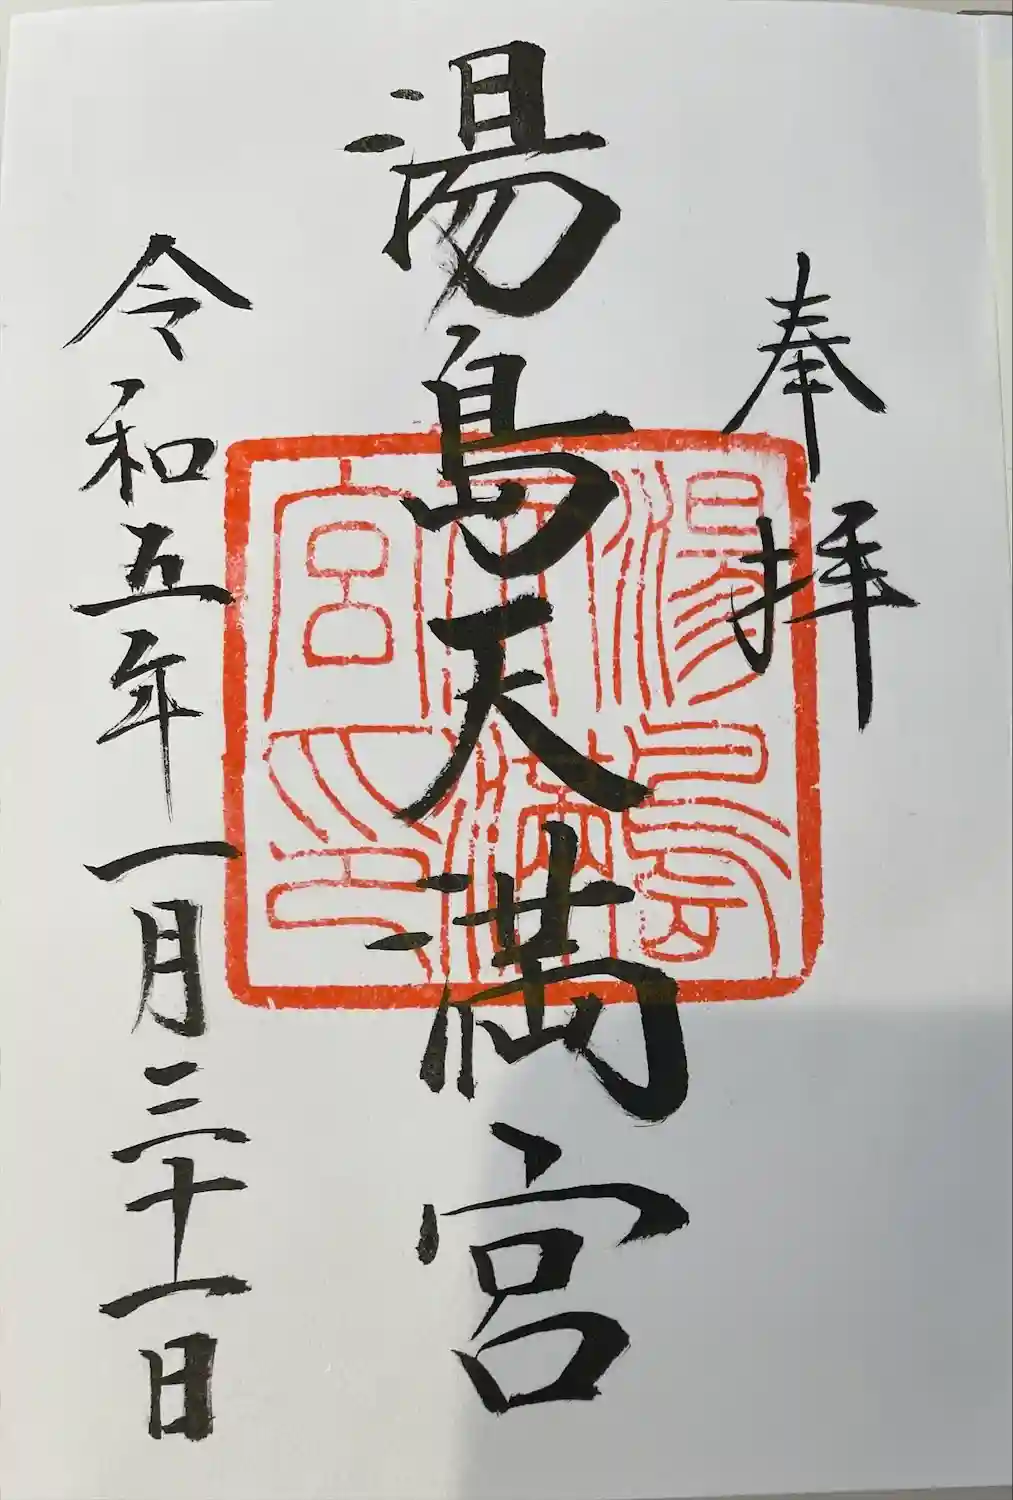 奉拝
湯島天満宮
湯島天満宮印
令和五年一月三十一日